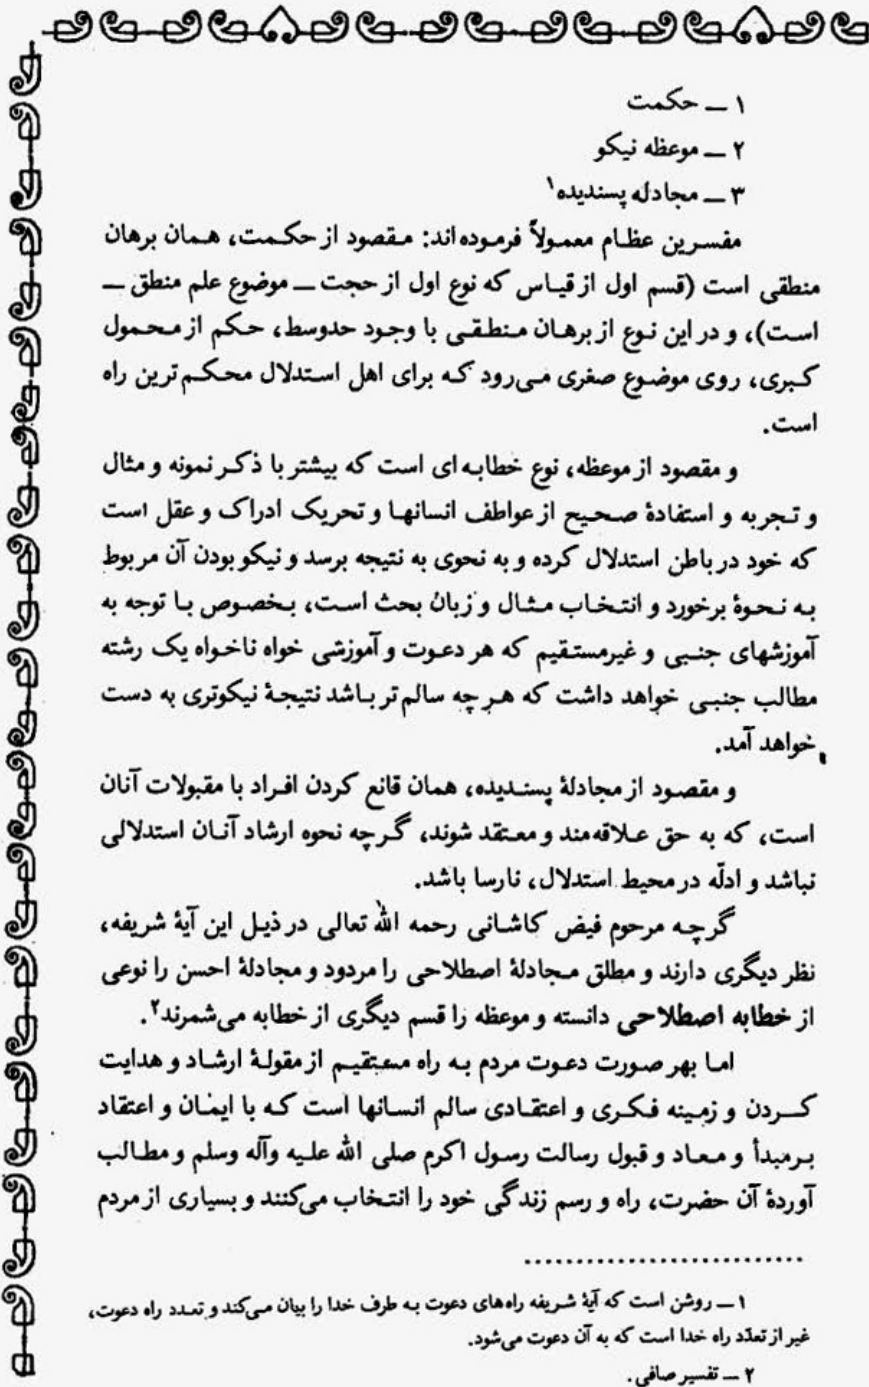 ۱ ــ حکمت
۲ ــ موعظه نیکو
۳ ــ مجادله پسندیده۱
مفسرین عظام معمولاً فرموده‌اند: مقصود از حکمت، همان برهان
منطقی است (قسم اول از قیاس که نوع اول از حجت ــ موضوع علم منطق ــ
است)، و در این نوع از برهان منطقی با وجود حدوسط، حکم از محمول
کبری، روی موضوع صغری می‌رود که برای اهل استدلال محکم‌ترین راه
است.
و مقصود از موعظه، نوع خطابه‌ای است که بیشتر با ذکر نمونه و مثال
و تجربه و استفادهٔ صحیح از عواطف انسانها و تحریک ادراک و عقل است
که خود در باطن استدلال کرده و به نحوی به نتیجه برسد و نیکو بودن آن مربوط
به نحوهٔ برخورد و انتخاب مثال و زبان بحث است، بخصوص با توجه به
آموزشهای جنبی و غیرمستقیم که هر دعوت و آموزشی خواه ناخواه یک رشته
مطالب جنبی خواهد داشت که هر چه سالم‌تر باشد نتیجهٔ نیکوتری به دست
خواهد آمد.
و مقصود از مجادلهٔ پسندیده، همان قانع کردن افراد با مقبولات آنان
است، که به حق علاقه‌مند و معتقد شوند، گرچه نحوه ارشاد آنان استدلالی
نباشد و ادلّه در محیط استدلال، نارسا باشد.
گرچه مرحوم فیض کاشانی رحمه الله تعالی در ذیل این آیهٔ شریفه،
نظر دیگری دارند و مطلق مجادلهٔ اصطلاحی را مردود و مجادلهٔ احسن را نوعی
از خطابه اصطلاحی دانسته و موعظه را قسم دیگری از خطابه می‌شمرند۲.
اما بهر صورت دعوت مردم به راه مستقیم از مقولهٔ ارشاد و هدایت
کردن و زمینه فکری و اعتقادی سالم انسانها است که با ایمان و اعتقاد
برمبدأ و معاد و قبول رسالت رسول اکرم صلی الله علیه وآله وسلم و مطالب
آوردهٔ آن حضرت، راه و رسم زندگی خود را انتخاب می‌کنند و بسیاری از مردم
۱ ــ روشن است که آیهٔ شریفه راه‌های دعوت به طرف خدا را بیان می‌کند و تعدد راه دعوت،
غیر از تعدّد راه خدا است که به آن دعوت می‌شود.
۲ ــ تفسیر صافی.